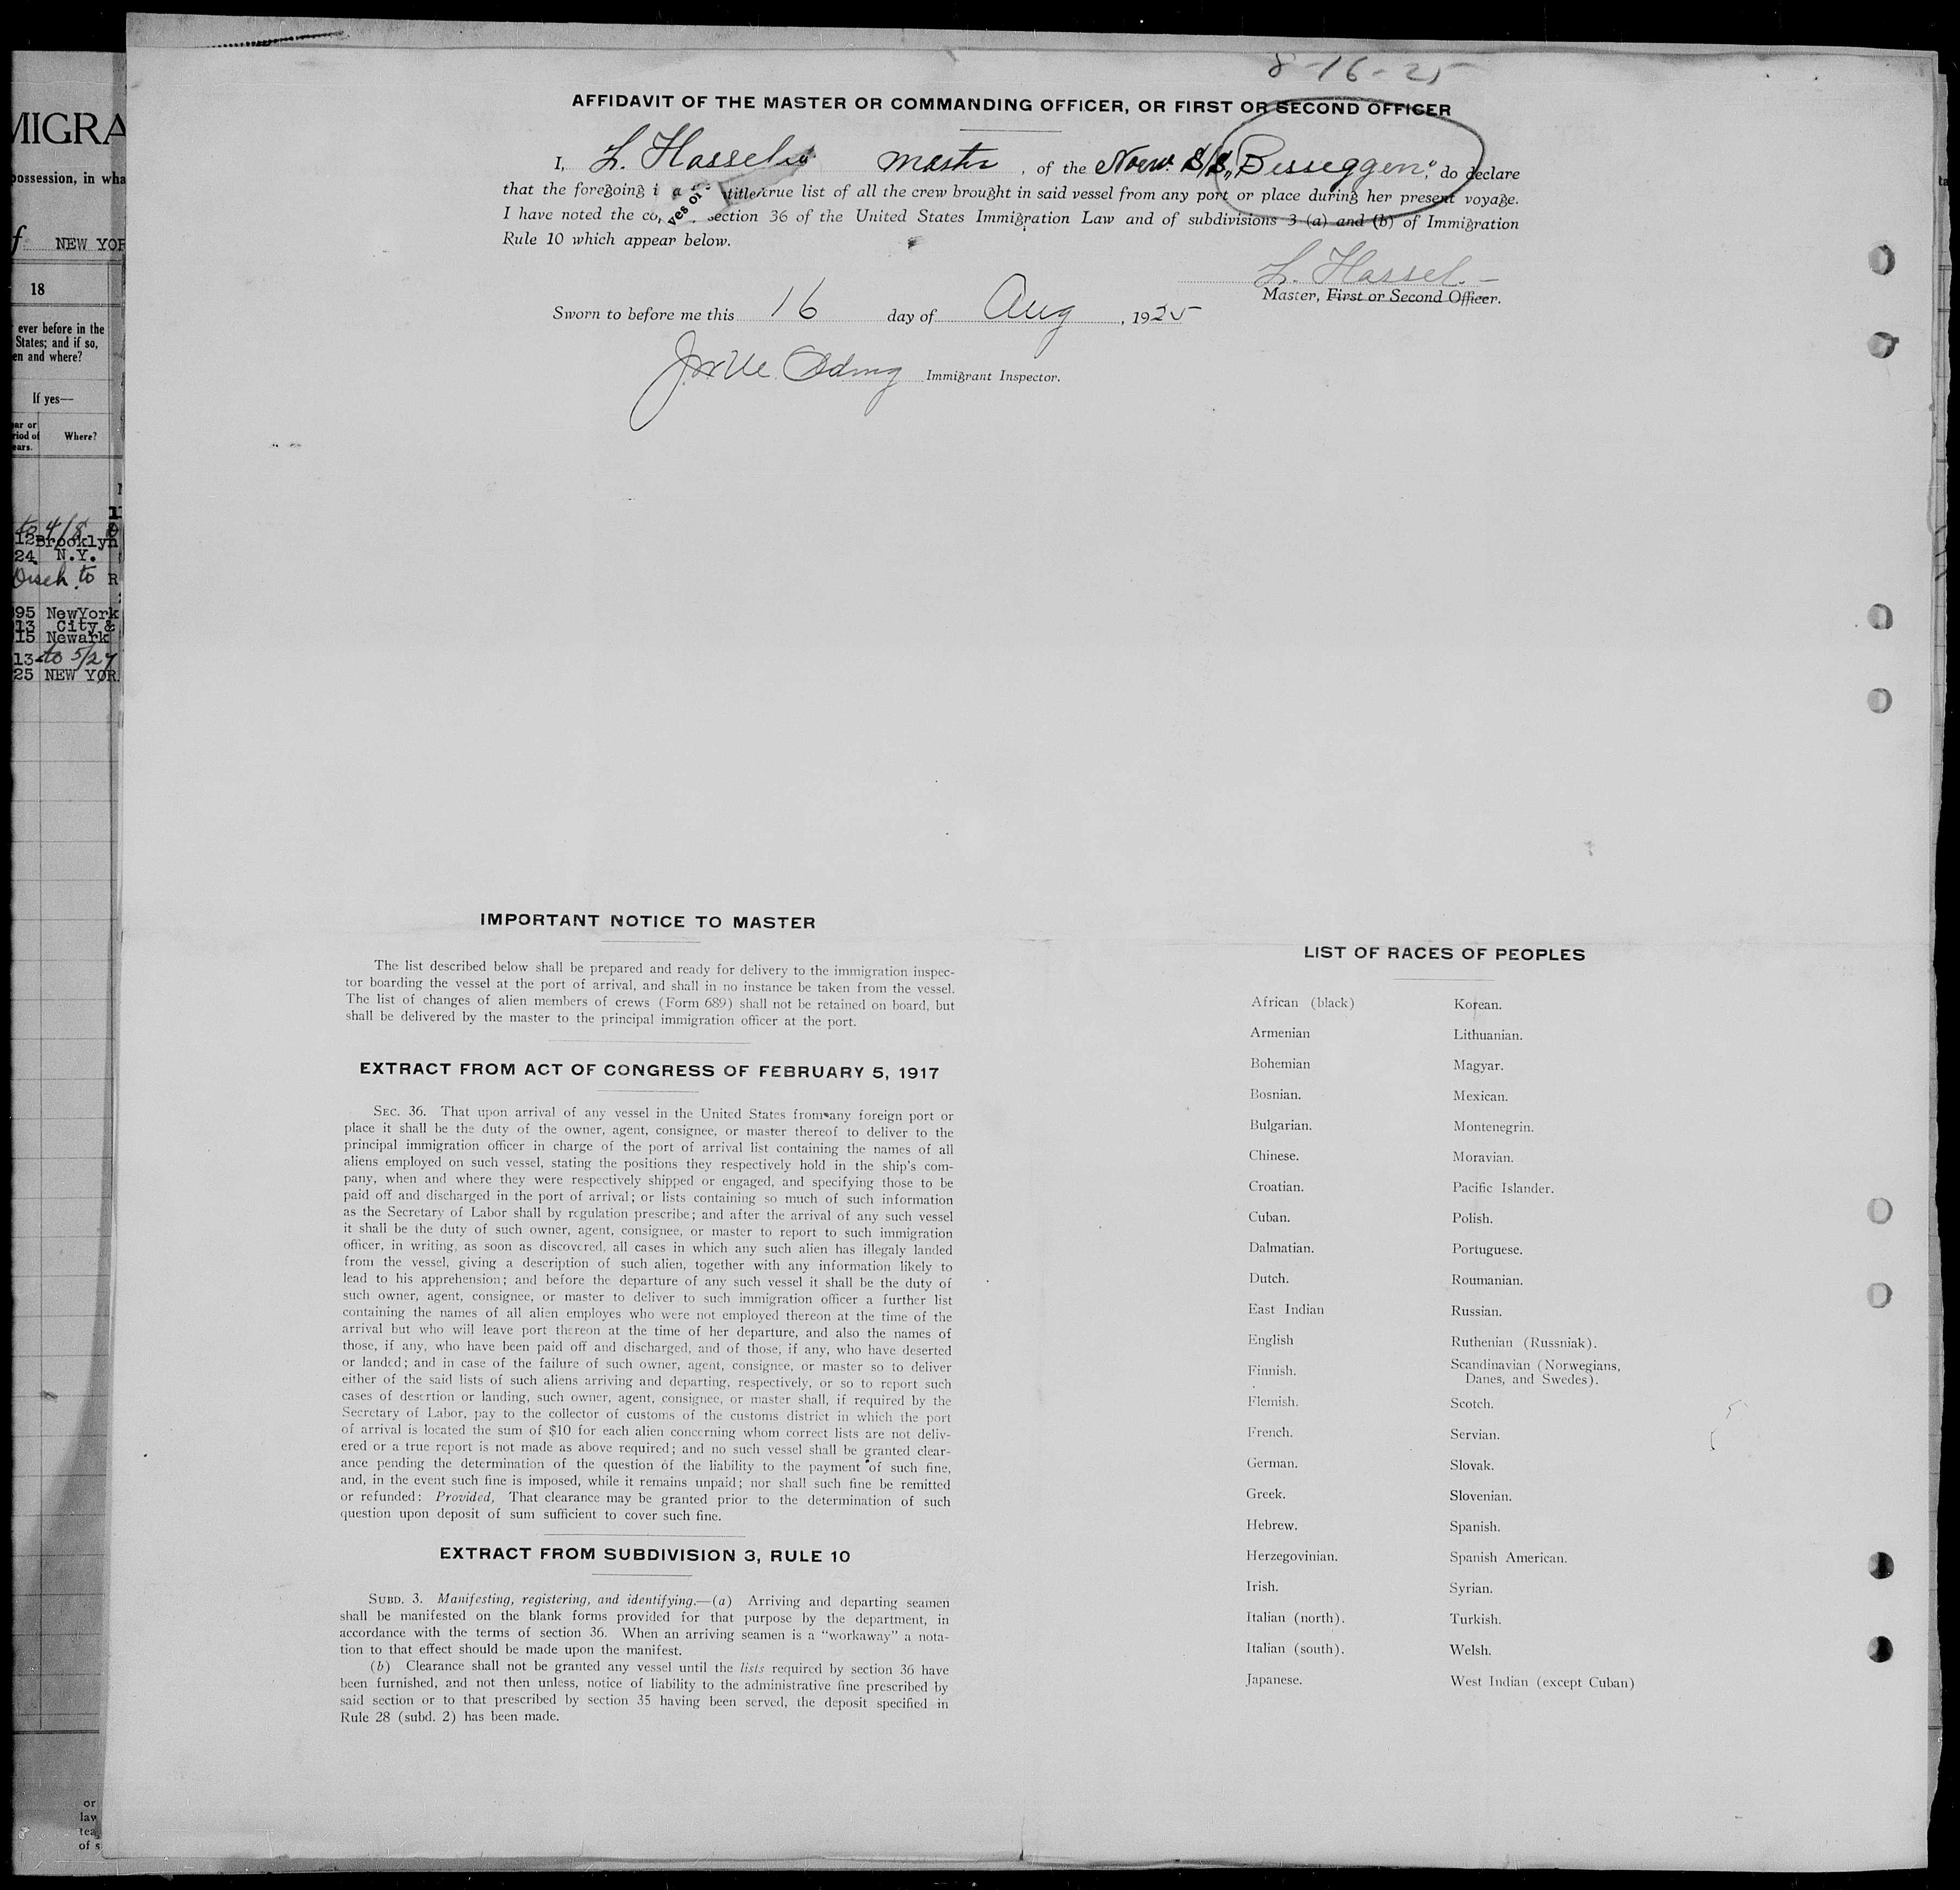 8-16-25
AFFIDAVIT OF THE MASTER OR COMMANDING OFFICER, OR FIRST OR SECOND OFFICER
I, L. Hassel master, of the Norw. S/S „Besseggen", do declare
that the foregoing i a title true list of all the crew brought in said vessel from any port or place during her present voyage.
yes or
I have noted the co, section 36 of the United States Immigration Law and of subdivisions 3 (a) and (b) of Immigration
Rule 10 which appear below.
L. Hassel.-
Master, First or Second Officer.
Sworn to before me this 16 day of Aug, 1925
Immigrant Inspector.
IMPORTANT NOTICE TO MASTER
The list described below shall be prepared and ready for delivery to the immigration inspec-
tor boarding the vessel at the port of arrival, and shall in no instance be taken from the vessel.
The list of changes of alien members of crews (Form 689) shall not be retained on board, but
shall be delivered by the master to the principal immigration officer at the port.
EXTRACT FROM ACT OF CONGRESS OF FEBRUARY 5, 1917
SEC. 36. That upon arrival of any vessel in the United States from any foreign port or
place it shall be the duty of the owner, agent, consignee, or master thereof to deliver to the
principal immigration officer in charge of the port of arrival list containing the names of all
aliens employed on such vessel, stating the positions they respectively hold in the ship's com-
pany, when and where they were respectively shipped or engaged, and specifying those to be
paid off and discharged in the port of arrival; or lists containing so much of such information
as the Secretary of Labor shall by regulation prescribe; and after the arrival of any such vessel
it shall be the duty of such owner, agent, consignee, or master to report to such immigration
officer, in writing, as soon as discovered, all cases in which any such alien has illegaly landed
from the vessel, giving a description of such alien, together with any information likely to
lead to his apprehension; and before the departure of any such vessel it shall be the duty of
such owner, agent, consignee, or master to deliver to such immigration officer a further list
containing the names of all alien employes who were not employed thereon at the time of the
arrival but who will leave port thereon at the time of her departure, and also the names of
those, if any, who have been paid off and discharged, and of those, if any, who have deserted
or landed; and in case of the failure of such owner, agent, consignee, or master so to deliver
either of the said lists of such aliens arriving and departing, respectively, or so to report such
cases of desertion or landing, such owner, agent, consignee, or master shall, if required by the
Secretary of Labor, pay to the collector of customs of the customs district in which the port
of arrival is located the sum of $10 for each alien concerning whom correct lists are not deliv-
ered or a true report is not made as above required; and no such vessel shall be granted clear-
ance pending the determination of the question of the liability to the payment of such fine,
and, in the event such fine is imposed, while it remains unpaid; nor shall such fine be remitted
or refunded: Provided, That clearance may be granted prior to the determination of such
question upon deposit of sum sufficient to cover such fine.
EXTRACT FROM SUBDIVISION 3, RULE 10
SUBD. 3. Manifesting, registering, and identifying.—(a) Arriving and departing seamen
shall be manifested on the blank forms provided for that purpose by the department, in
accordance with the terms of section 36. When an arriving seamen is a "workaway" a nota-
tion to that effect should be made upon the manifest.
(b) Clearance shall not be granted any vessel until the lists required by section 36 have
been furnished, and not then unless, notice of liability to the administrative fine prescribed by
said section or to that prescribed by section 35 having been served, the deposit specified in
Rule 28 (subd. 2) has been made.
LIST OF RACES OF PEOPLES
African (black)
Armenian
Bohemian
Bosnian.
Bulgarian.
Chinese.
Croatian.
Cuban.
Dalmatian.
Dutch.
East Indian
English
Finnish.
Flemish.
French.
German.
Greek.
Hebrew.
Herzegovinian.
Irish.
Italian (north).
Italian (south).
Japanese.
Korean.
Lithuanian.
Magyar.
Mexican.
Montenegrin.
Moravian.
Pacific Islander.
Polish.
Portuguese.
Roumanian.
Russian.
Ruthenian (Russniak).
Scandinavian (Norwegians,
Danes, and Swedes).
Scotch.
Servian.
Slovak.
Slovenian.
Spanish.
Spanish American.
Syrian.
Turkish.
Welsh.
West Indian (except Cuban)
MIGRA
possession, in wha
f NEW YOR
18
ever before in the
States; and if so,
en and where?
If yes—
ar or
riod of
ears.
Where?
to 4/8
12 Brooklyn
24 N.Y.
Disch. to R
95 NewYork
13 City &
15 Newark
13 to 5/27
25 NEW YOR
or
law
tea
of s